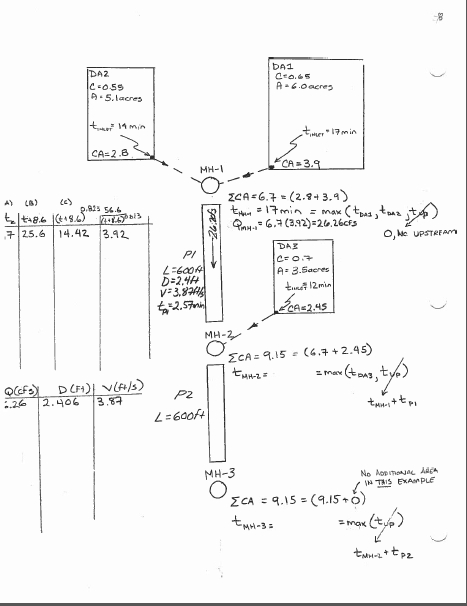 DA2
C=0.55
A=5.1acres
tINLET=14min
CA=2.8
DA1
C=0.65
A=6.0acres
tINLET=17min
CA=3.9
MH-1
ΣCA=6.7=(2.8+3.9)
tMH-1=17min = max(tDA1, tDA2, tup)
QMH-1=6.7(3.92)=26.26cfs
0, NO UPSTREAM
A) (B) (C)
t+8.6 (t+8.6)^0.823 56.6
.7 25.6 14.42 3.92
P1
L=600ft
D=2.4ft
V=3.87ft/s
tP1=2.57min
DA3
C=0.7
A=3.5acres
tINLET=12min
CA=2.45
MH-2
ΣCA=9.15=(6.7+2.45)
tMH-2= =max(tDA3, tup)
tMH-1+tP1
Q(cfs) D(Ft) V(ft/s)
.26 2.406 3.87
P2
L=600ft
MH-3
NO ADDITIONAL AREA
IN THIS EXAMPLE
ΣCA=9.15=(9.15+0)
tMH-3= =max(tup)
tMH-2+tP2